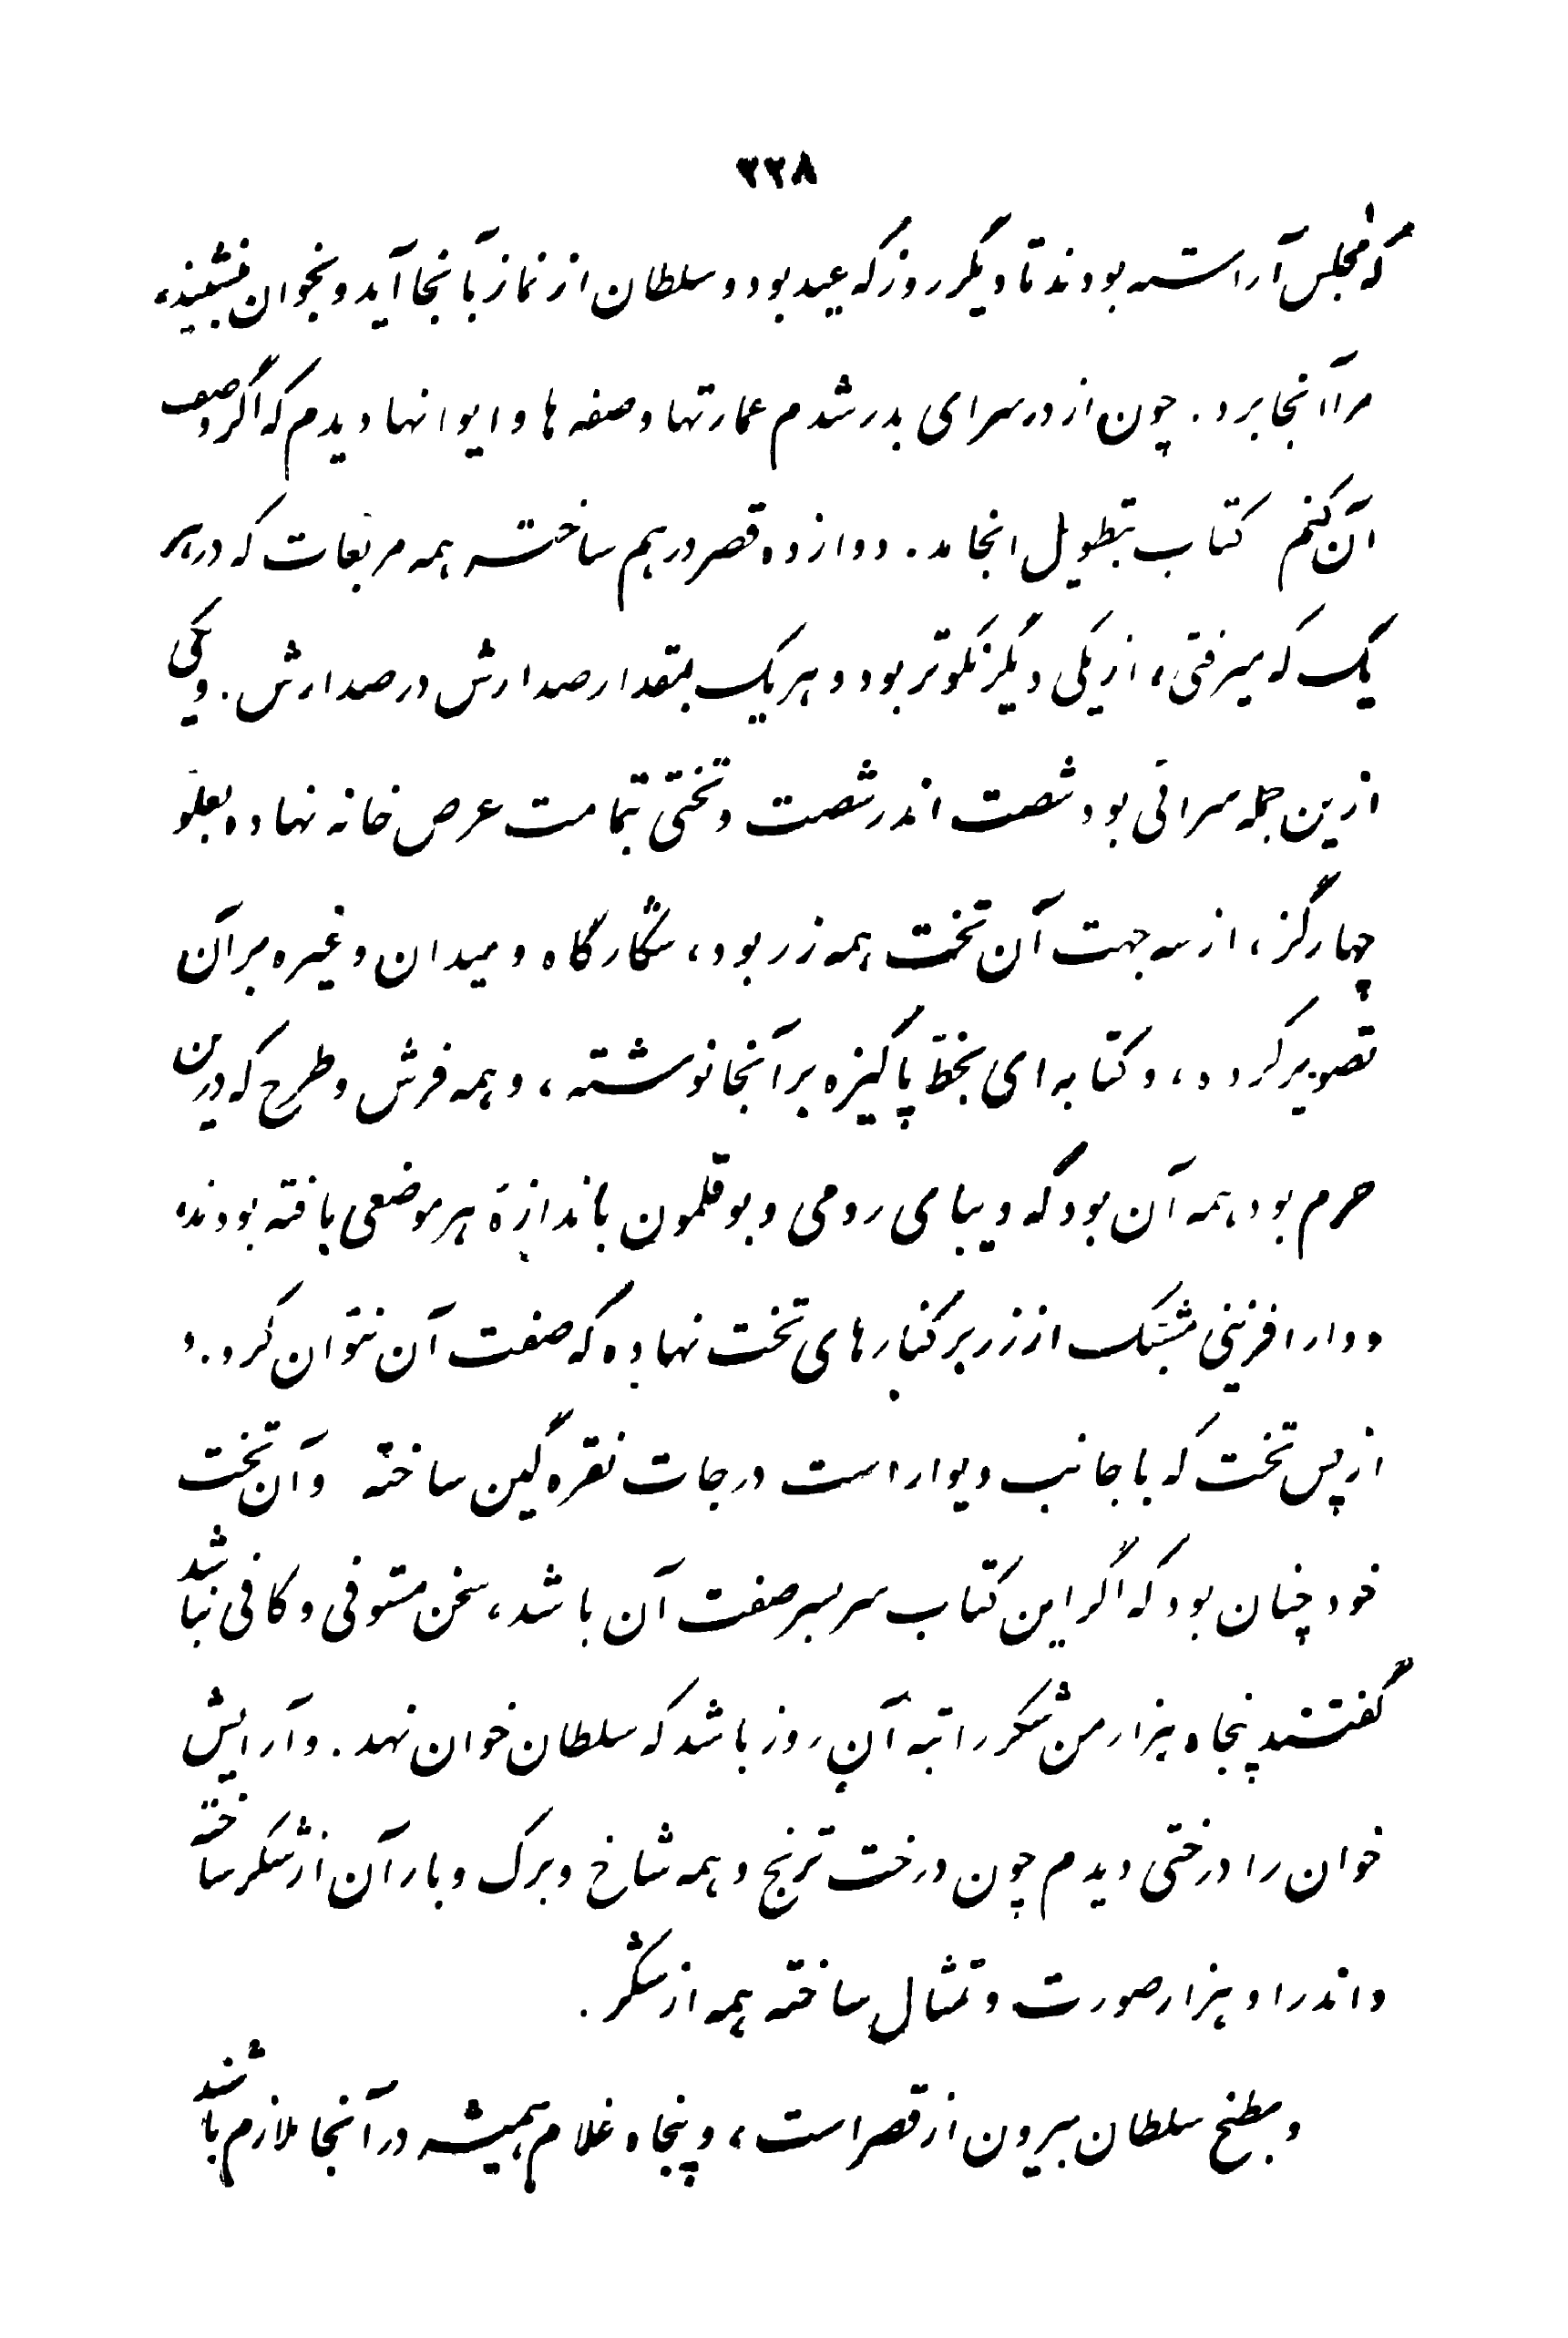 ۳۲۸
که مجلس آراسته بودند تا دیگر روز که عید بود و سلطان از نماز بآنجا آید و بخوان بنشیند،
مرا آنجا برد. چون از در سرای بدر شدم عمارتها و صفه ها و ایوانها دیدم که اگر وصف
آن کنم کتاب بتطویل انجامد. دوازده قصر در هم ساخته همه مربعات که در هر
یک که میرفتی، از یکی دیگر نکوتر بود و هر یک بمقدار صد ارش در صد ارش. و یکی
ازین جمله سرائی بود شصت اندر شصت و تختی بتمامت عرض خانه نهاده بعلو
چهار گز، از سه جهت آن تخت همه زر بود، شکارگاه و میدان و غیره بر آن
تصویر کرده، و کتابه ای بخط پاکیزه بر آنجا نوشته، و همه فرش و طرح که درین
حرم بود همه آن بود که دیبای رومی و بوقلمون باندازهٔ هر موضعی بافته بودند،
و دارافزینی مشبک از زر بر کنارهای تخت نهاده که صفت آن نتوان کرد. و
از پس تخت که با جانب دیوار است درجات نقره گین ساخته و آن تخت
خود چنان بود که اگر این کتاب سر بسر صفت آن باشد، سخن مستوفی و کافی نباشد
گفتند پنجاه هزار من شکر راتبه آن روز باشد که سلطان خوان نهد. و آرایش
خوان را درختی دیدم چون درخت ترنج و همه شاخ و برک و بار آن از شکر ساخته
و اندر او هزار صورت و تمثال ساخته همه از شکر.
و مطبخ سلطان بیرون از قصر است، و پنجاه غلام همیشه در آنجا ملازم باشند